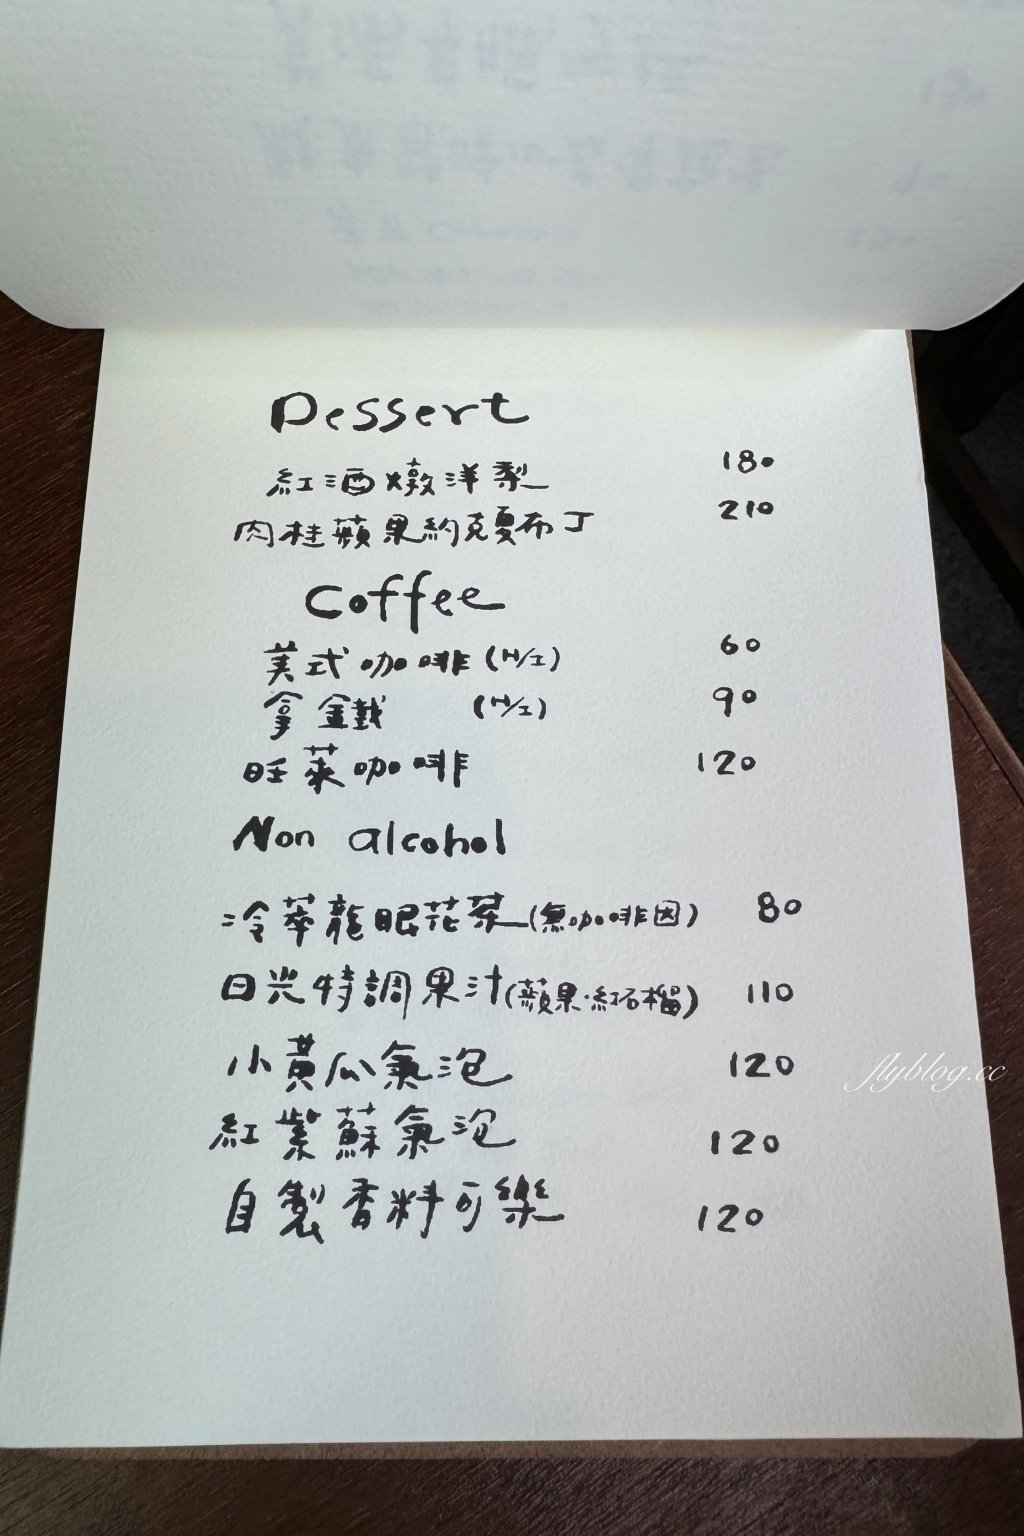 Dessert
紅酒燉洋梨 180
肉桂蘋果約克夏布丁 210
Coffee
美式咖啡 (H/I) 60
拿鐵 (H/I) 90
旺萊咖啡 120
Non alcohol
冷萃龍眼花茶(無咖啡因) 80
日光特調果汁(蘋果·紅石榴) 110
小黃瓜氣泡 120
flyblog.cc
紅紫蘇氣泡 120
自製香料可樂 120